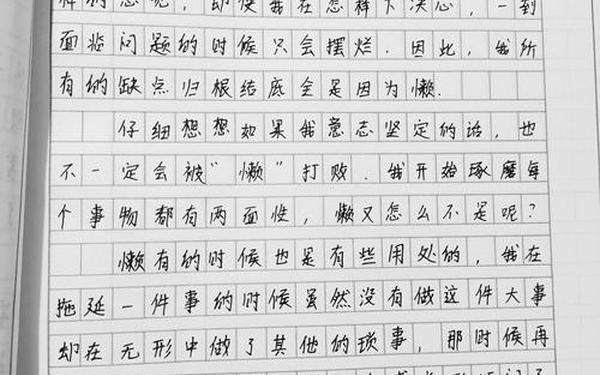 样的念呢，即使我在怎样下决心，一到
面临问题的时候只会摆烂．因此，我所
有的缺点归根结底全是因为懒．
仔细想想如果我意志坚定的话，也
不一定会被“懒”打败．我开始琢磨每
个事物都有两面性，懒又怎么不是呢？
懒有的时候也是有些用处的，我在
拖延一件事的时候虽然没有做这件大事
却在无形中做了其他的琐事，那时候再